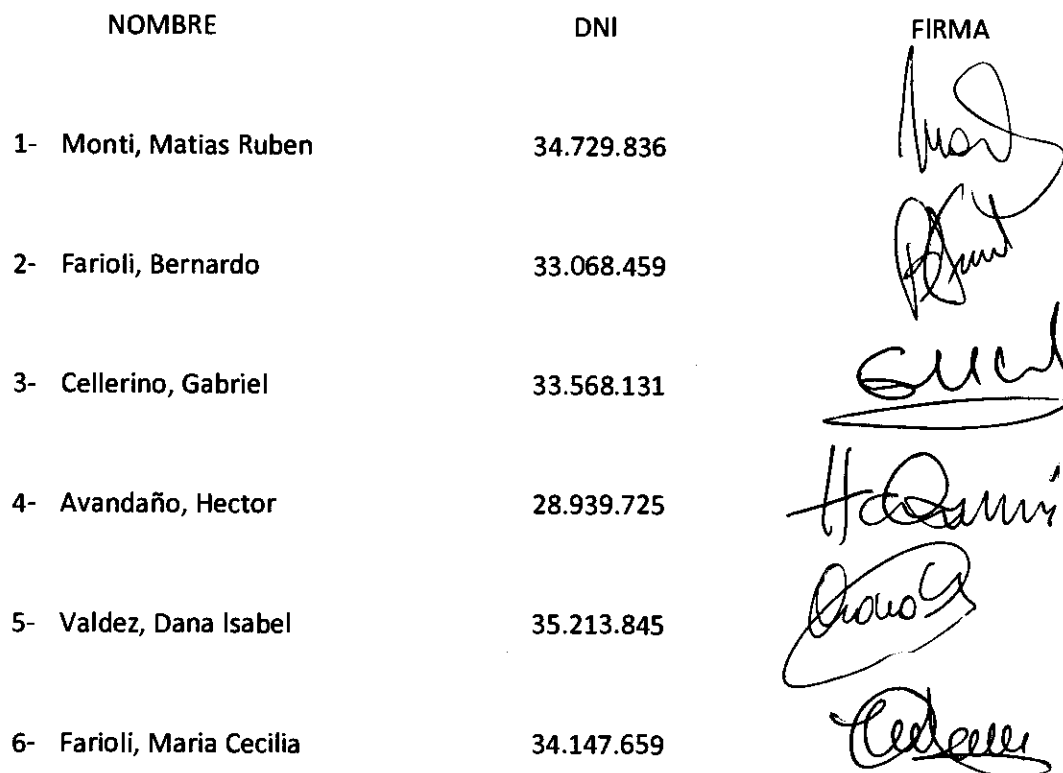 NOMBRE DNI FIRMA
1- Monti, Matias Ruben 34.729.836
2- Farioli, Bernardo 33.068.459
3- Cellerino, Gabriel 33.568.131
4- Avandaño, Hector 28.939.725
5- Valdez, Dana Isabel 35.213.845
6- Farioli, Maria Cecilia 34.147.659